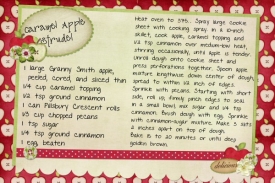 Caramel Apple
Strudel
1 large Granny Smith apple,
peeled, cored, and sliced thin
1/4 cup caramel topping
1/2 tsp ground cinnamon
1 can Pillsbury Crescent rolls
1/3 cup chopped pecans
1 tsp sugar
1/4 tsp ground cinnamon
1 egg, beaten
Heat oven to 375. Spray large cookie
sheet with cooking spray. In a 10-inch
skillet, cook apple, caramel topping and
1/2 tsp cinnamon over medium-low heat,
stirring occasionally, until apple is tender.
Unroll dough onto cookie sheet and
press perforations together. Spoon apple
mixture lengthwise down center of dough,
spread to within 1/2 inch of edges.
Sprinkle with pecans. Starting with short
side, roll up, firmly pinch edges to seal.
In a small bowl, mix sugar and 1/4 tsp
cinnamon. Brush dough with egg. Sprinkle
with cinnamon-sugar mixture. Make 3 slits
2 inches apart on top of dough.
Bake 15 to 20 minutes or until deep
golden brown.
delicious